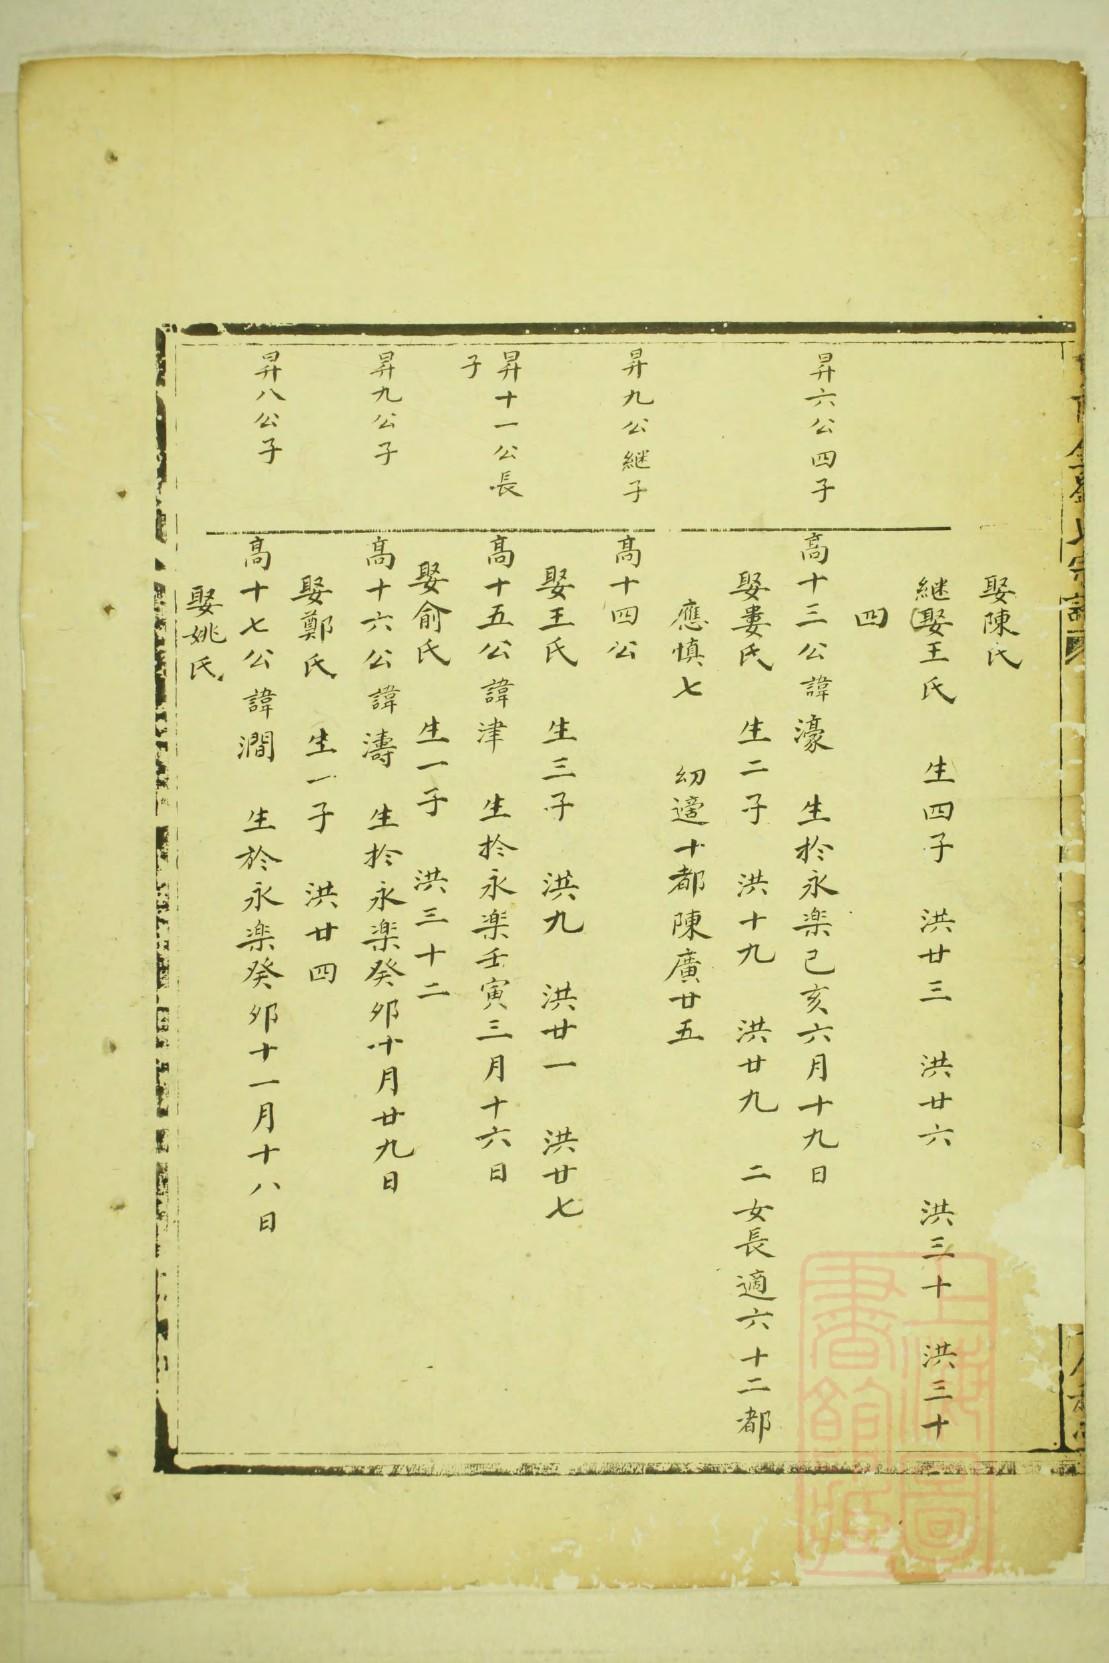 娶陳氏
継娶王氏 生四子 洪廿三 洪廿六 洪三十 洪三十
四
昇六公四子
高十三公諱濠 生於永楽己亥六月十九日
娶婁氏 生二子 洪十九 洪廿九 二女長適六十二都
應慎七 幼適十都陳廣廿五
昇九公継子
高十四公
娶王氏 生三子 洪九 洪廿一 洪廿七
昇十一公長
子
高十五公諱津 生於永楽壬寅三月十六日
娶俞氏 生一子 洪三十二
昇九公子
高十六公諱濤 生於永楽癸夘十月廿九日
娶鄭氏 生一子 洪廿四
昇八公子
高十七公諱澗 生於永楽癸夘十一月十八日
娶姚氏
上海圖
書館藏